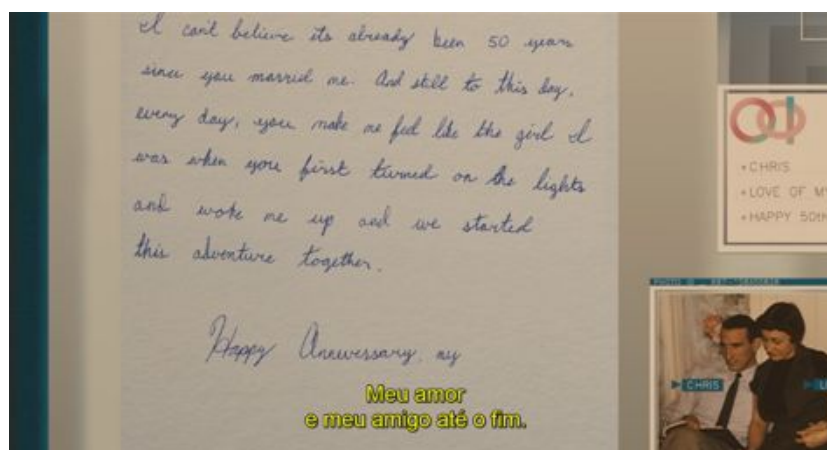 I can't believe its already been 50 years
since you married me. And still to this day,
every day, you make me feel like the girl I
was when you first turned on the lights
and woke me up and we started
this adventure together.
Happy Anniversary, my
Meu amor
e meu amigo até o fim.
+CHRIS
+LOVE OF MY
+HAPPY 50th
CHRIS